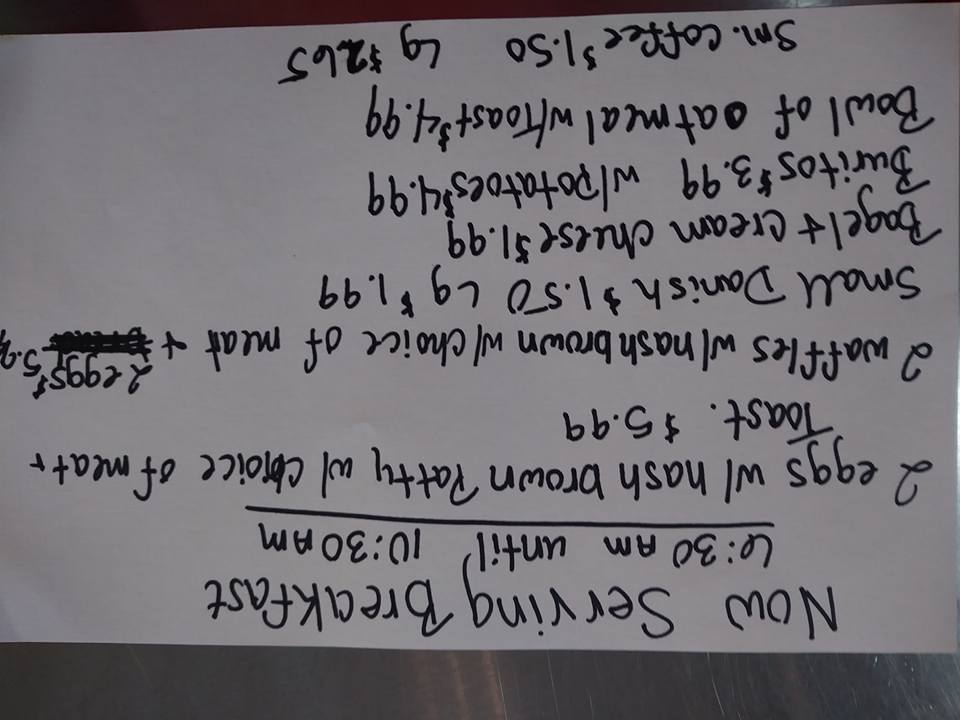 Now Serving Breakfast
6:30 AM until 10:30 AM
2 eggs w/ hash brown Patty w/ choice of meat +
Toast. $5.99
2 waffles w/hashbrown w/choice of meat + 2 eggs $5.9
Small Danish $1.50 Lg $1.99
Bagel + cream cheese $1.99
Buritos $3.99 w/potatoes $4.99
Bowl of oatmeal w/Toast $4.99
Sm. coffee $1.50 Lg $2.65